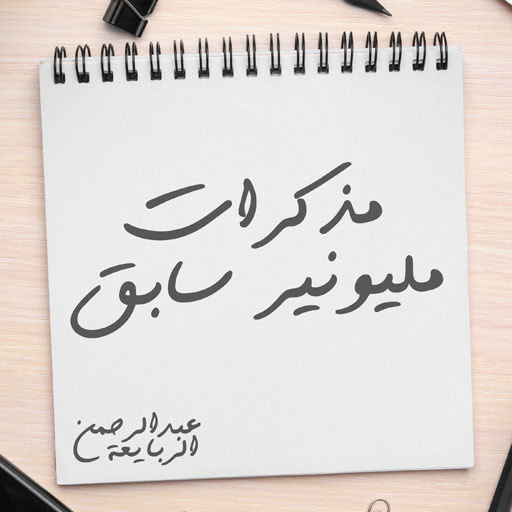 مذكرات
مليونير سابق
عبدالرحمن
الربايعة